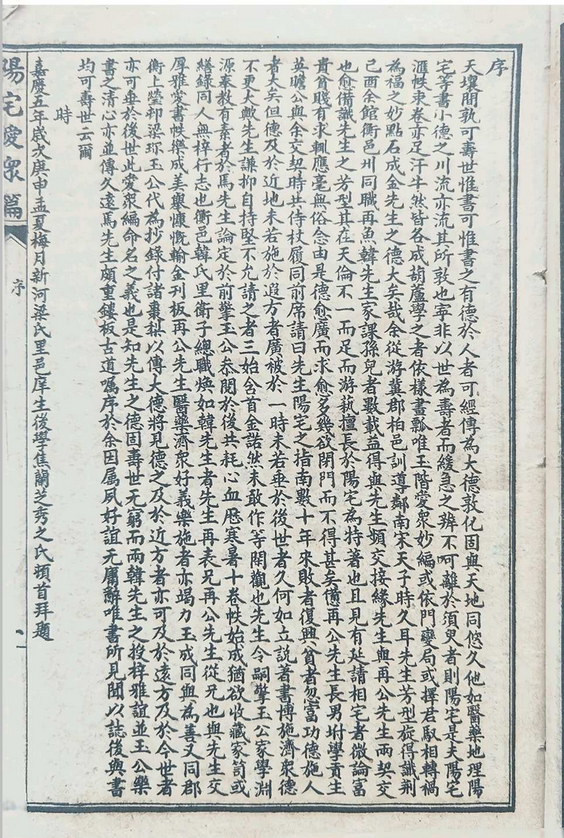 序
天壤間孰可壽世惟書可惟書之有德於人者可經傳為大德敦化固與天地同悠久他如醫藥地理陽
宅等書小德之川流亦流其所敦也寧非以世為壽者而緩急之辨不可離於須臾者則陽宅是夫陽宅
滙帙束卷亦足汗牛然皆各成葫蘆學之者依樣畫瓢唯王階愛衆妙編或依門變局或擇君馭相轉禍
為福之妙點石成金先生之德大矣哉余從游冀郡柏邑訓導鄰南宋天子時久耳先生芳型旋得識荆
己酉余館衛邑州同職再魚韓先生家課孫兒者數載益得與先生頻交接緣先生與再公先生兩契交
也愈備識先生之芳型其在天倫不一而足而游藝擅長於陽宅為特著也且見有延請相宅者微論富
貴貧賤有求輒應毫無俗念由是德愈廣而求愈多幾欲閉門而不得甚矣憊再公先生長男坿學貢生
英瞻公與余交契時共侍杖履同前席請曰先生陽宅之指南數十年來敗者復興貧者忽富功德施人
者大矣但德及於近地未若施於遐方者廣被於一時未若垂於後世者久何如立說著書博施濟衆德
不更大歟先生謙抑自持堅不允請之者三始令首金諾然未敢作等閑觀也先生令嗣擎玉公家學淵
源泰教有素者於馬先生論定於前擎玉公叅閱於後共耗心血歷寒暑十卷帙始成猶欲收藏家笥或
繕錄同人無梓行志也衛邑韓氏里衛子總職煥如韓先生者先生再表兄再公先生從兄也與先生交
厚雅愛書帙樂成美舉慷慨輸金刊板再公先生醫藥濟衆好義樂施者亦竭力玉成同與為善又同郡
衛上塋邨梁珎玉公代為抄錄付諸棗梨以傳大德將見德之及於近方者亦可及於遠方及於今世者
亦可垂於後世此愛衆編命名之義也是知先生之德固壽世无窮而兩韓先生之授梓雅誼並玉公樂
書之清心亦並傳久遠馬先生頗重鏤板古道囑序於余因屬夙好誼无庸辭唯書所見聞以誌後與書
均可壽世云爾
時
嘉慶五年歲次庚申孟夏梅月新河梁氏里邑庠生後學焦蘭芝秀之氏頓首拜題
陽宅愛衆篇
序